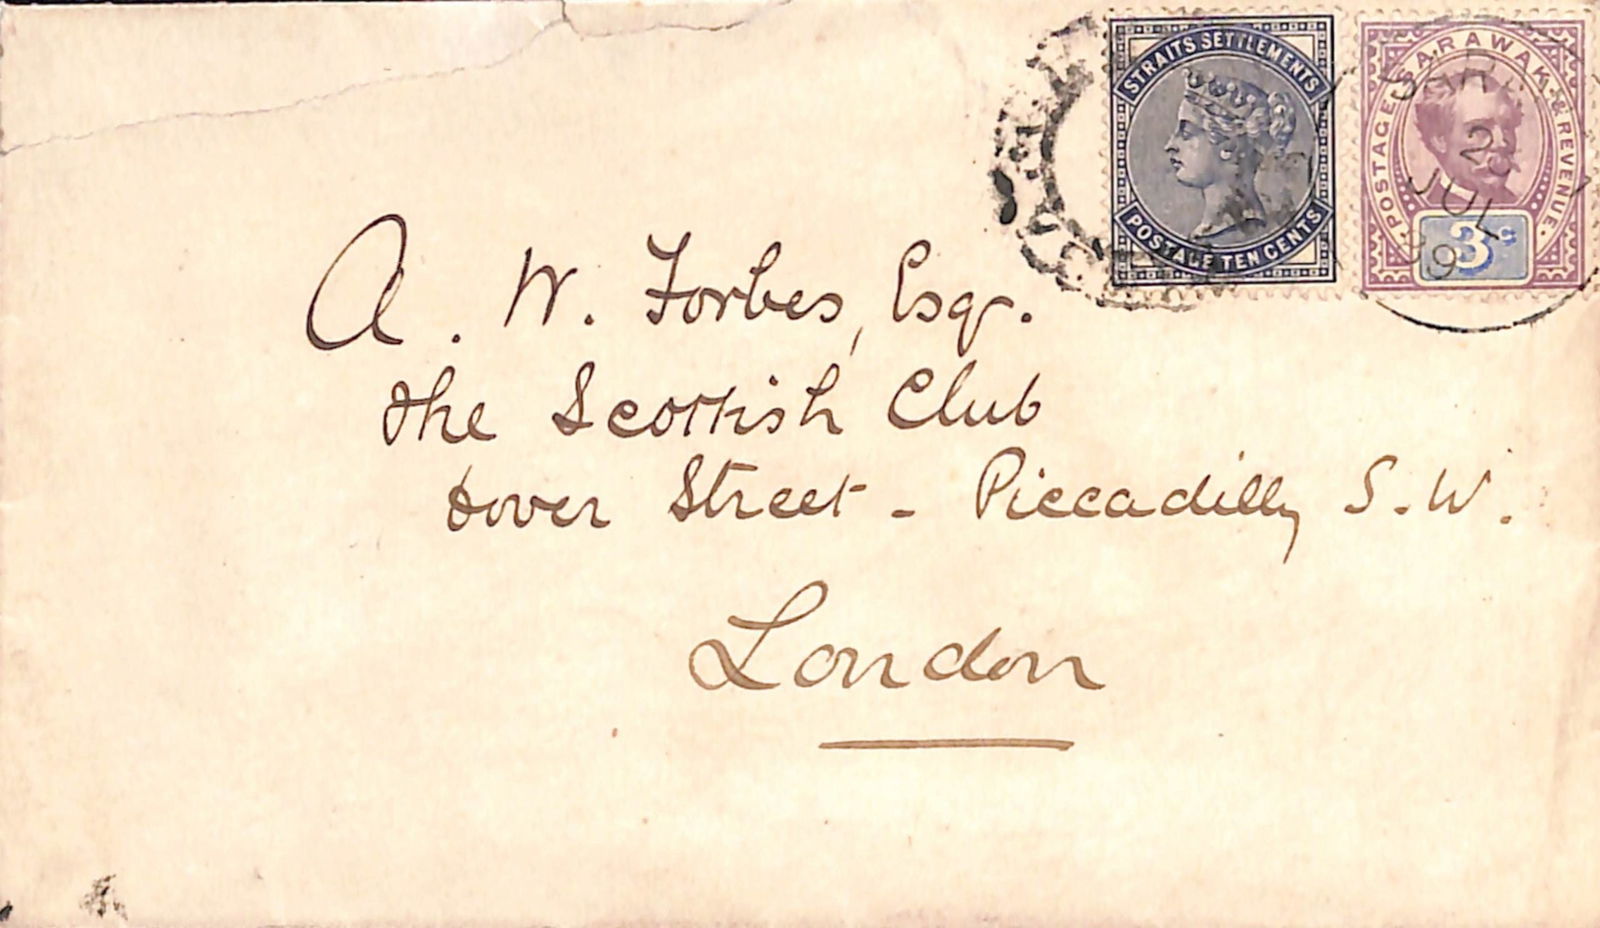 STRAITS SETTLEMENTS
POSTAGE TEN CENTS
SARAWAK
POSTAGE & REVENUE
3c
JUL
89
A. W. Forbes, Esqr.
The Scottish Club
Dover Street - Piccadilly S.W.
London